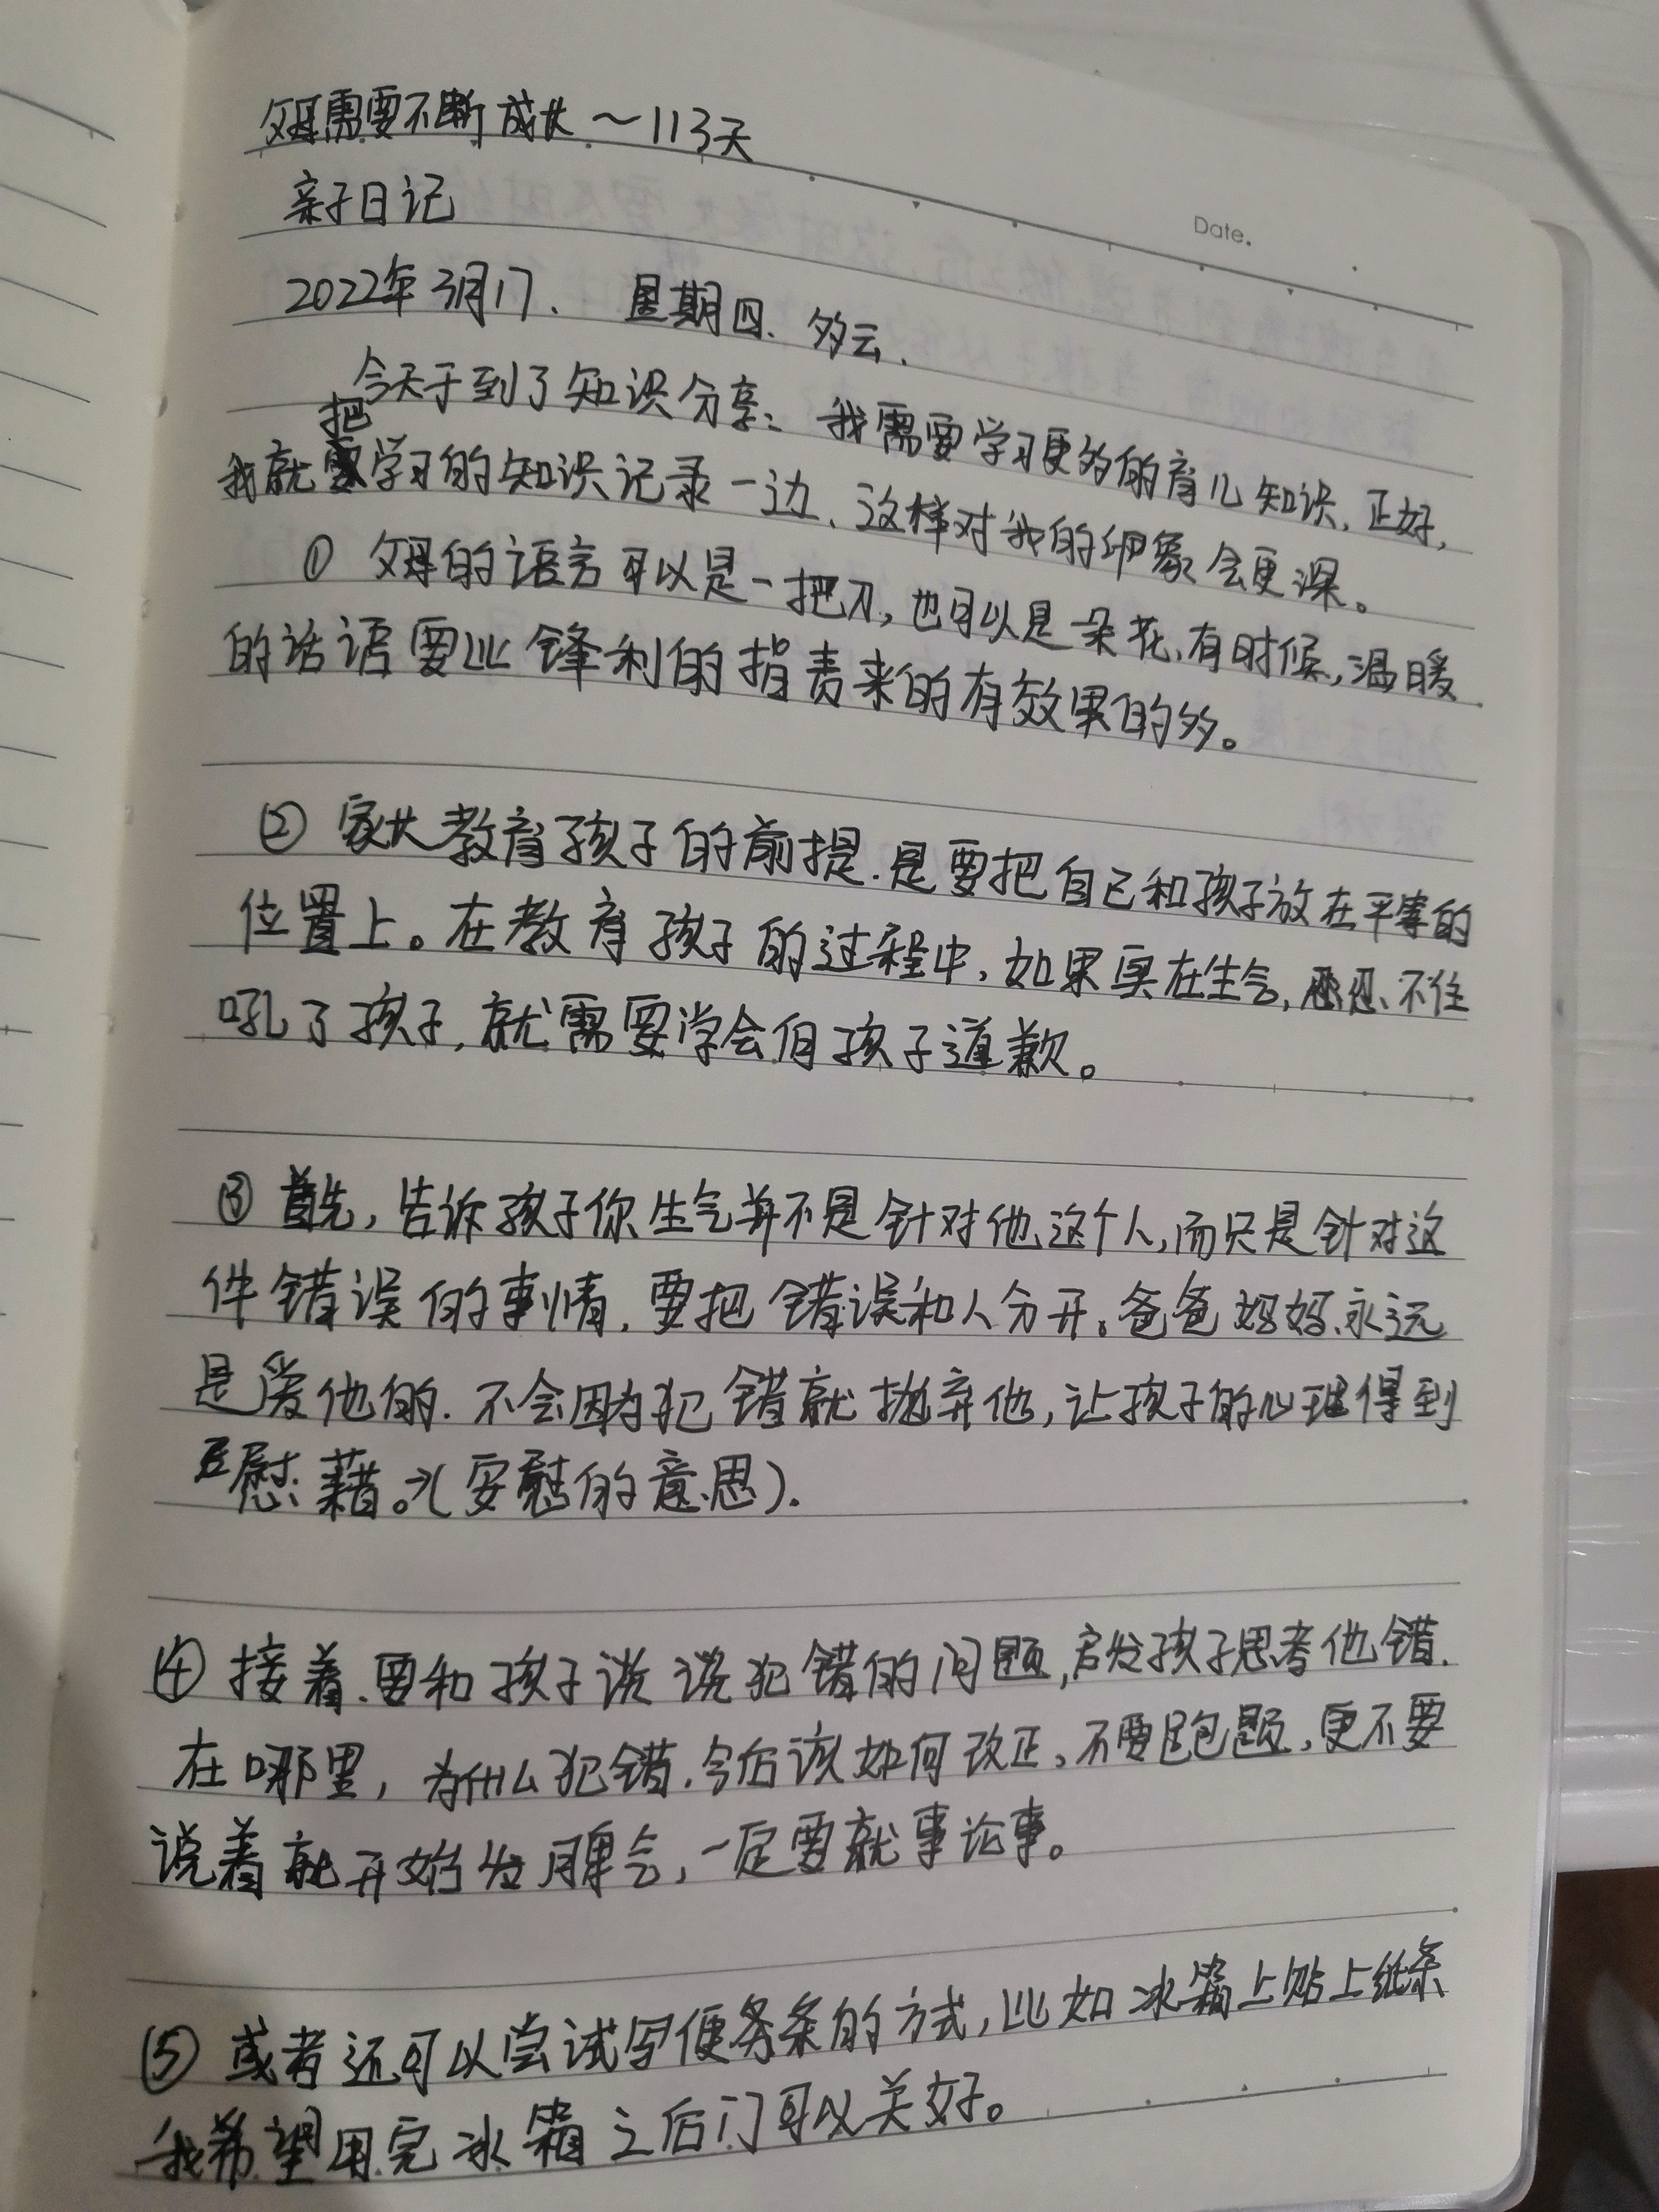 父母需要不断成长～113天
亲子日记
Date.
2022年3月17. 星期四. 多云.
今天于到了知识分享: 我需要学习更多的育儿知识, 正好,
我就把学习的知识记录一边, 这样对我的印象会更深。
① 父母的语言可以是一把刀, 也可以是一朵花, 有时候, 温暖
的话语要比锋利的指责来的有效果的多。
② 家长教育孩子的前提. 是要把自己和孩子放在平等的
位置上。在教育孩子的过程中, 如果实在生气, 忍不住
吼了孩子, 就需要学会向孩子道歉。
③ 首先, 告诉孩子你生气并不是针对他这个人, 而只是针对这
件错误的事情, 要把错误和人分开。爸爸妈妈永远
是爱他的. 不会因为犯错就抛弃他, 让孩子的心理得到
慰藉。→(安慰的意思).
④ 接着. 要和孩子说说犯错的问题, 启发孩子思考他错.
在哪里, 为什么犯错. 今后该如何改正。不要跑题, 更不要
说着就开始发脾气, 一定要就事论事。
⑤ 或者还可以尝试写便条的方式, 比如冰箱上贴上纸条
我希望用完冰箱之后门可以关好。